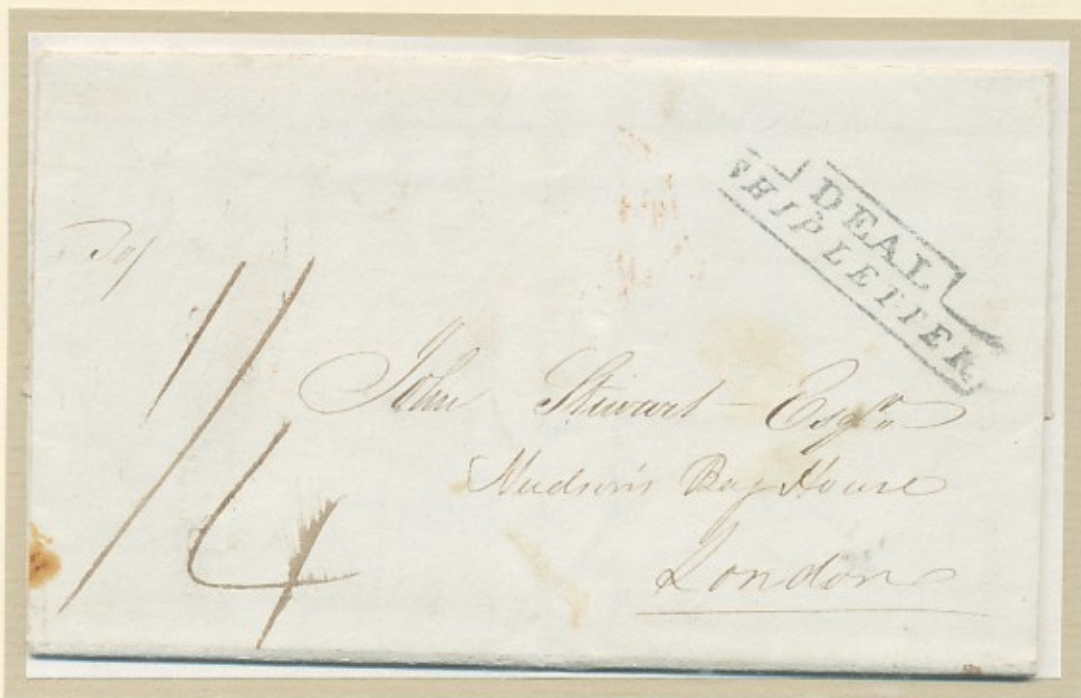 DEAL
SHIP LETTER
1/4
John Stewart Esqr
Hudson's Bay House
London